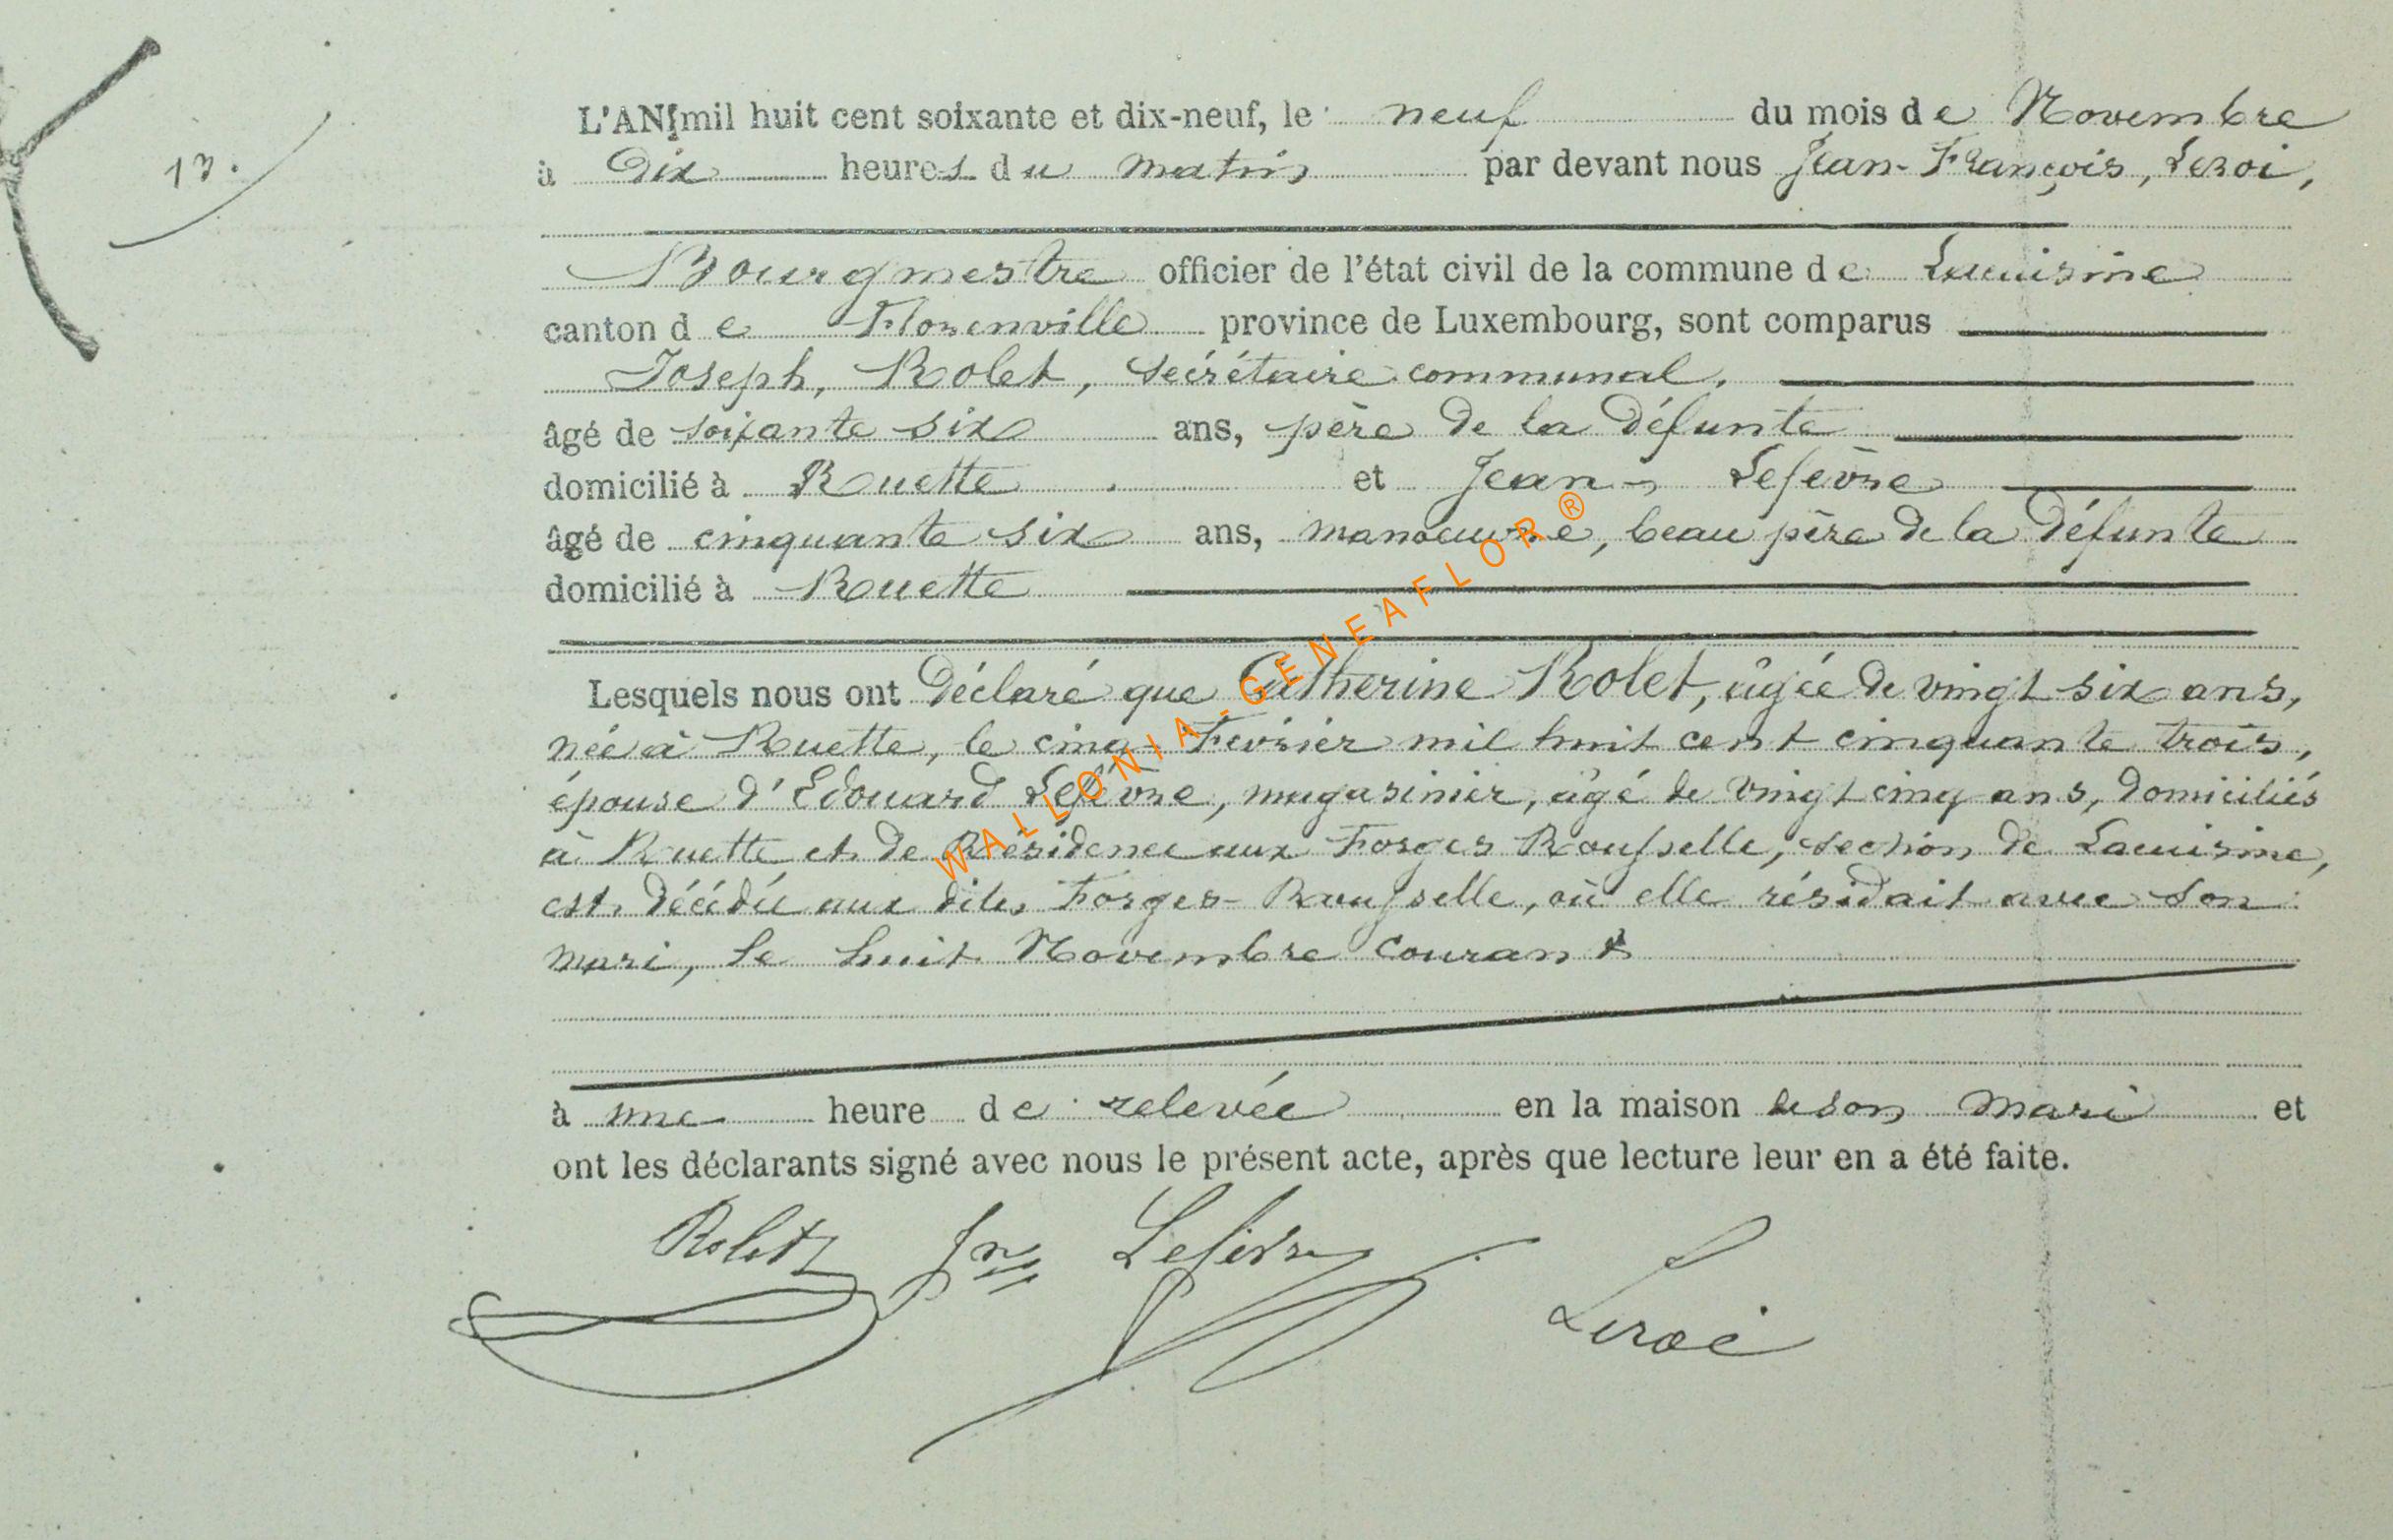 13.
L'AN mil huit cent soixante et dix-neuf, le neuf du mois de Novembre
à Dix heures du matin par devant nous Jean-François, Leroi,
Bourgmestre officier de l'état civil de la commune de Lacuisine
canton de Florenville province de Luxembourg, sont comparus
Joseph, Rolet, secrétaire communal,
âgé de soixante six ans, père de la défunte
domicilié à Ruette et Jean Lefèvre
âgé de cinquante six ans, manoeuvre, beau père de la défunte
domicilié à Ruette
Lesquels nous ont Déclaré que Catherine Rolet, âgée de vingt six ans,
née à Ruette, le cinq Février mil huit cent cinquante trois,
épouse d'Edouard Lefèvre, magasinier, âgé de vingt cinq ans, domiciliés
à Ruette et de Résidence aux Forges Rousselle, section de Lacuisine,
est décédée aux dites Forges-Rousselle, où elle résidait avec son
mari, le huit Novembre courant
à une heure de relevée en la maison de son mari et
ont les déclarants signé avec nous le présent acte, après que lecture leur en a été faite.
Rolet Jn Lefèvre
Leroi
WALLONIA-GENEAFLOR®